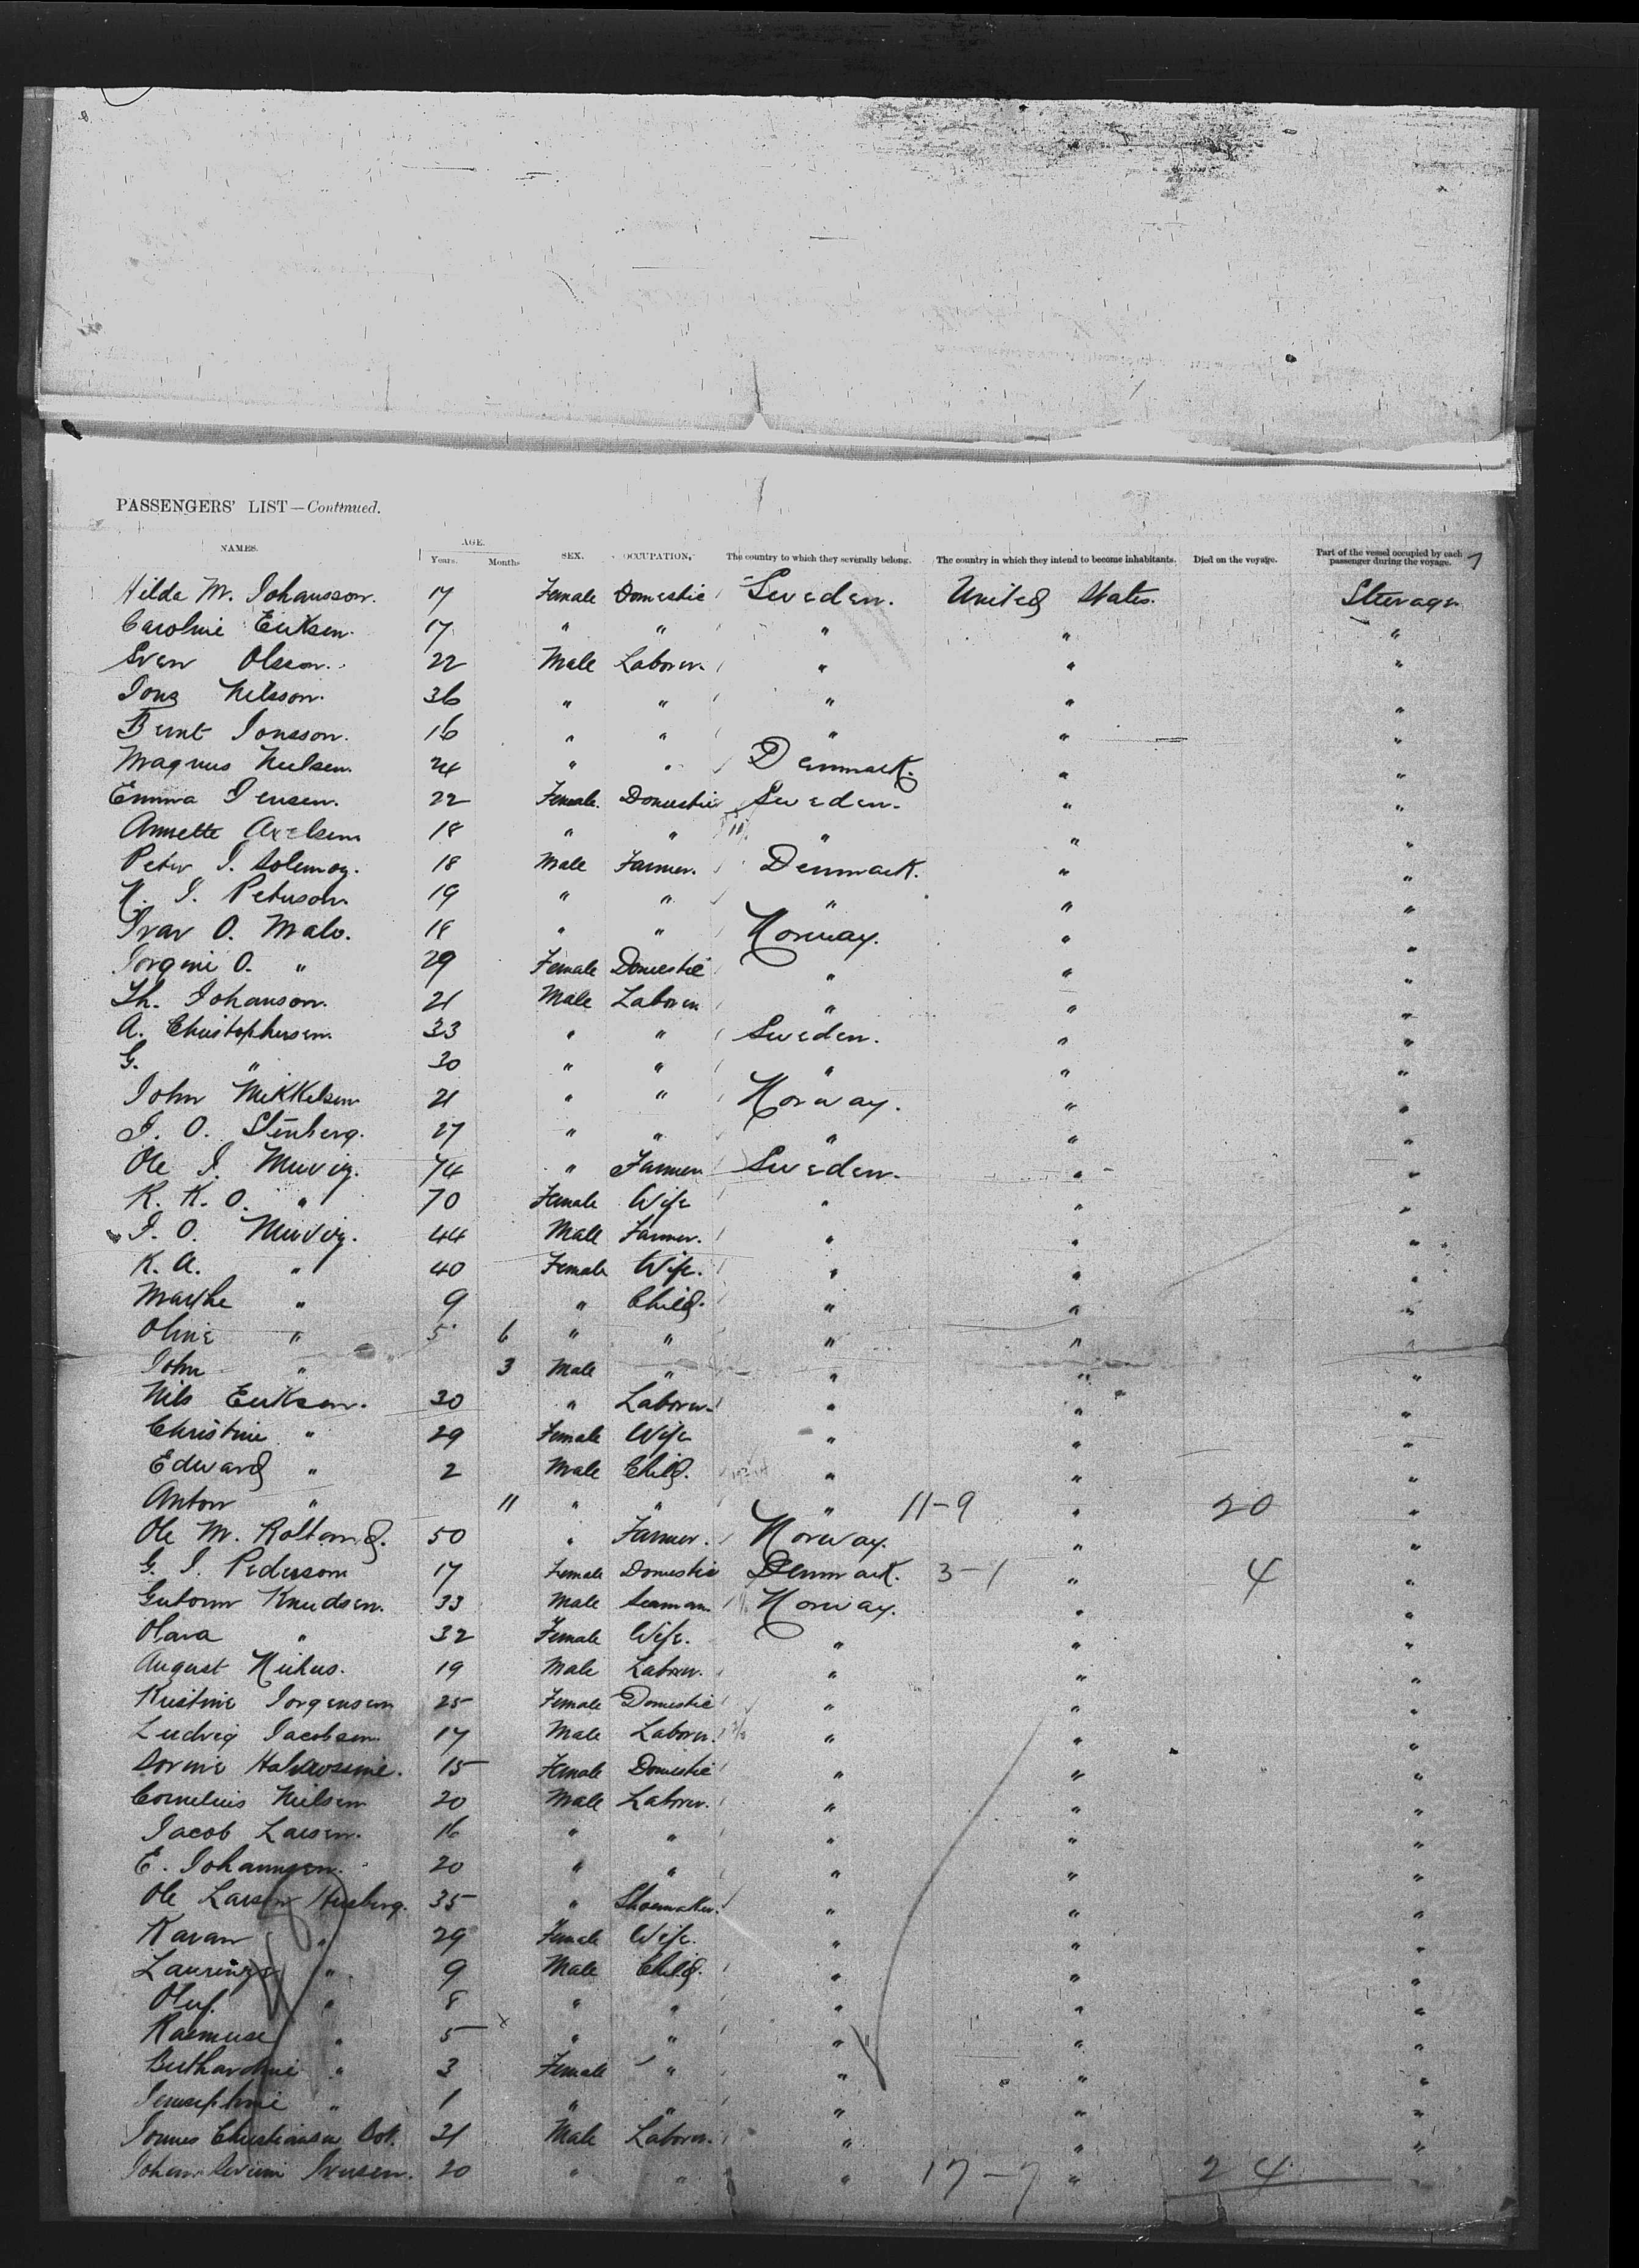 PASSENGERS' LIST—Continued.
NAMES. AGE. Years. Months SEX. OCCUPATION, The country to which they severally belong. The country in which they intend to become inhabitants. Died on the voyage. Part of the vessel occupied by each passenger during the voyage. 7
Hilda M. Johansson. 17 Female Domestic Sweden. United States. Steerage
Caroline Eriksen. 17 " " " " "
Sven Olsson. 22 Male Laborer. " " "
Jons Nilsson. 36 " " " " "
Bernt Jonsson. 16 " " " " "
Magnus Nielsen. 24 " " Denmark. " "
Emma Jensen. 22 Female. Domestic Sweden. " "
Annette Axelsen 18 " " " " "
Peter J. 18 Male Farmer. Denmark. " "
J. Peterson 19 " " " " "
Ivar O. Malo. 18 " " Norway. " "
Jorgine O. " 29 Female Domestic " " "
Th. Johanson. 21 Male Laborer " " "
A. Christophersen. 33 " " Sweden. " "
G. " 30 " " " " "
John Mikkelsen 21 " " Norway. " "
J. O. Stenberg. 27 " " " " "
Ole J. 74 " Farmer Sweden. " "
K. K. O. " 70 Female Wife " " "
J. O. 44 Male Farmer. " " "
K. A. " 40 Female Wife. " " "
Marthe " 9 " Child. " " "
Oline " 5 6 " " " " "
John " 3 Male " " " "
Nils Erikson. 30 " Laborer. " " "
Christine " 29 Female Wife " " "
Edward " 2 Male Child. " " "
Anton " 11 " " " 11-9 " 20 "
Ole M. 50 " Farmer. Norway. " "
G. J. Pederson 17 Female Domestic Denmark. 3-1 " 4 "
Gutorm Knudsen. 33 Male Seaman. Norway. " "
Olava " 32 Female Wife. " " "
August 19 Male Laborer. " " "
Kristine Jorgensen 25 Female Domestic " " "
Ludvig Jacobsen 17 Male Laborer. " " "
Sorine 15 Female Domestic " " "
Cornelius Nielsen 20 Male Laborer. " " "
Jacob Larsen. 16 " " " " "
E. Johannsen. 20 " " " " "
Ole Larsen Husberg. 35 " Shoemaker. " " "
Karan " 29 Female Wife. " " "
" 9 Male Child. " " "
Oluf. " 8 " " " " "
Rasmus " 5 x " " " " "
" 3 Female " " " "
" 1 " " " " "
Christiansen 21 Male Laborer. " " "
Johan Iversen. 20 " " " 17-7 " 24 "